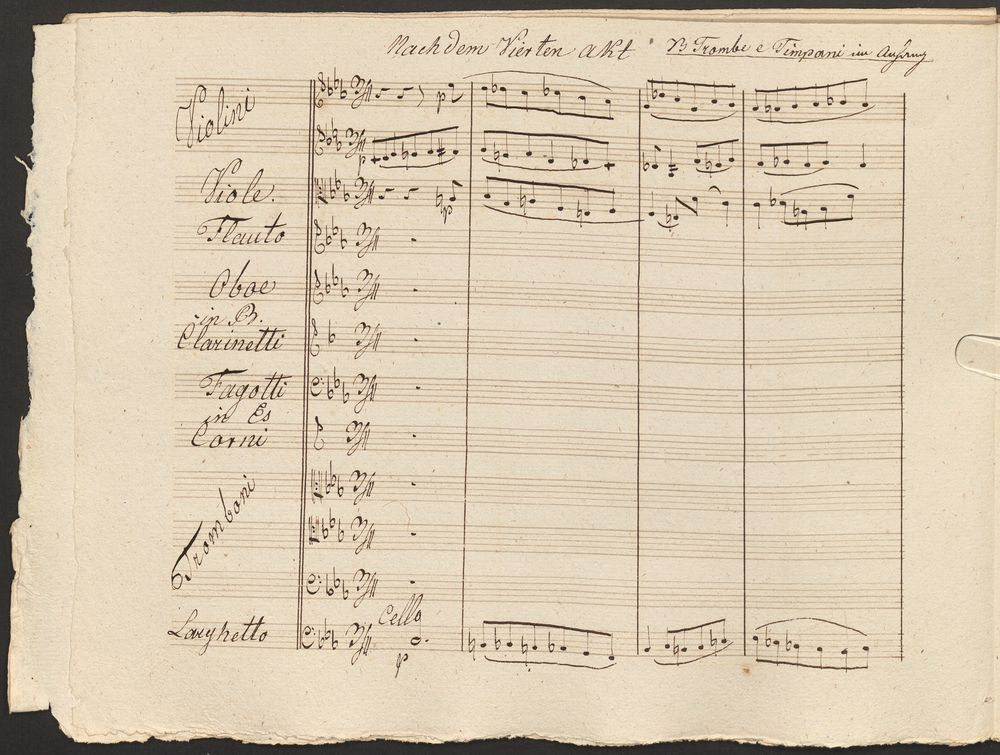 Nach dem Vierten akt NB Trombe e Timpani im Anfang
Violini
Viole.
Flauto
Oboe
in B.
Clarinetti
Fagotti
in Es
Corni
Tromboni
Cello
Larghetto